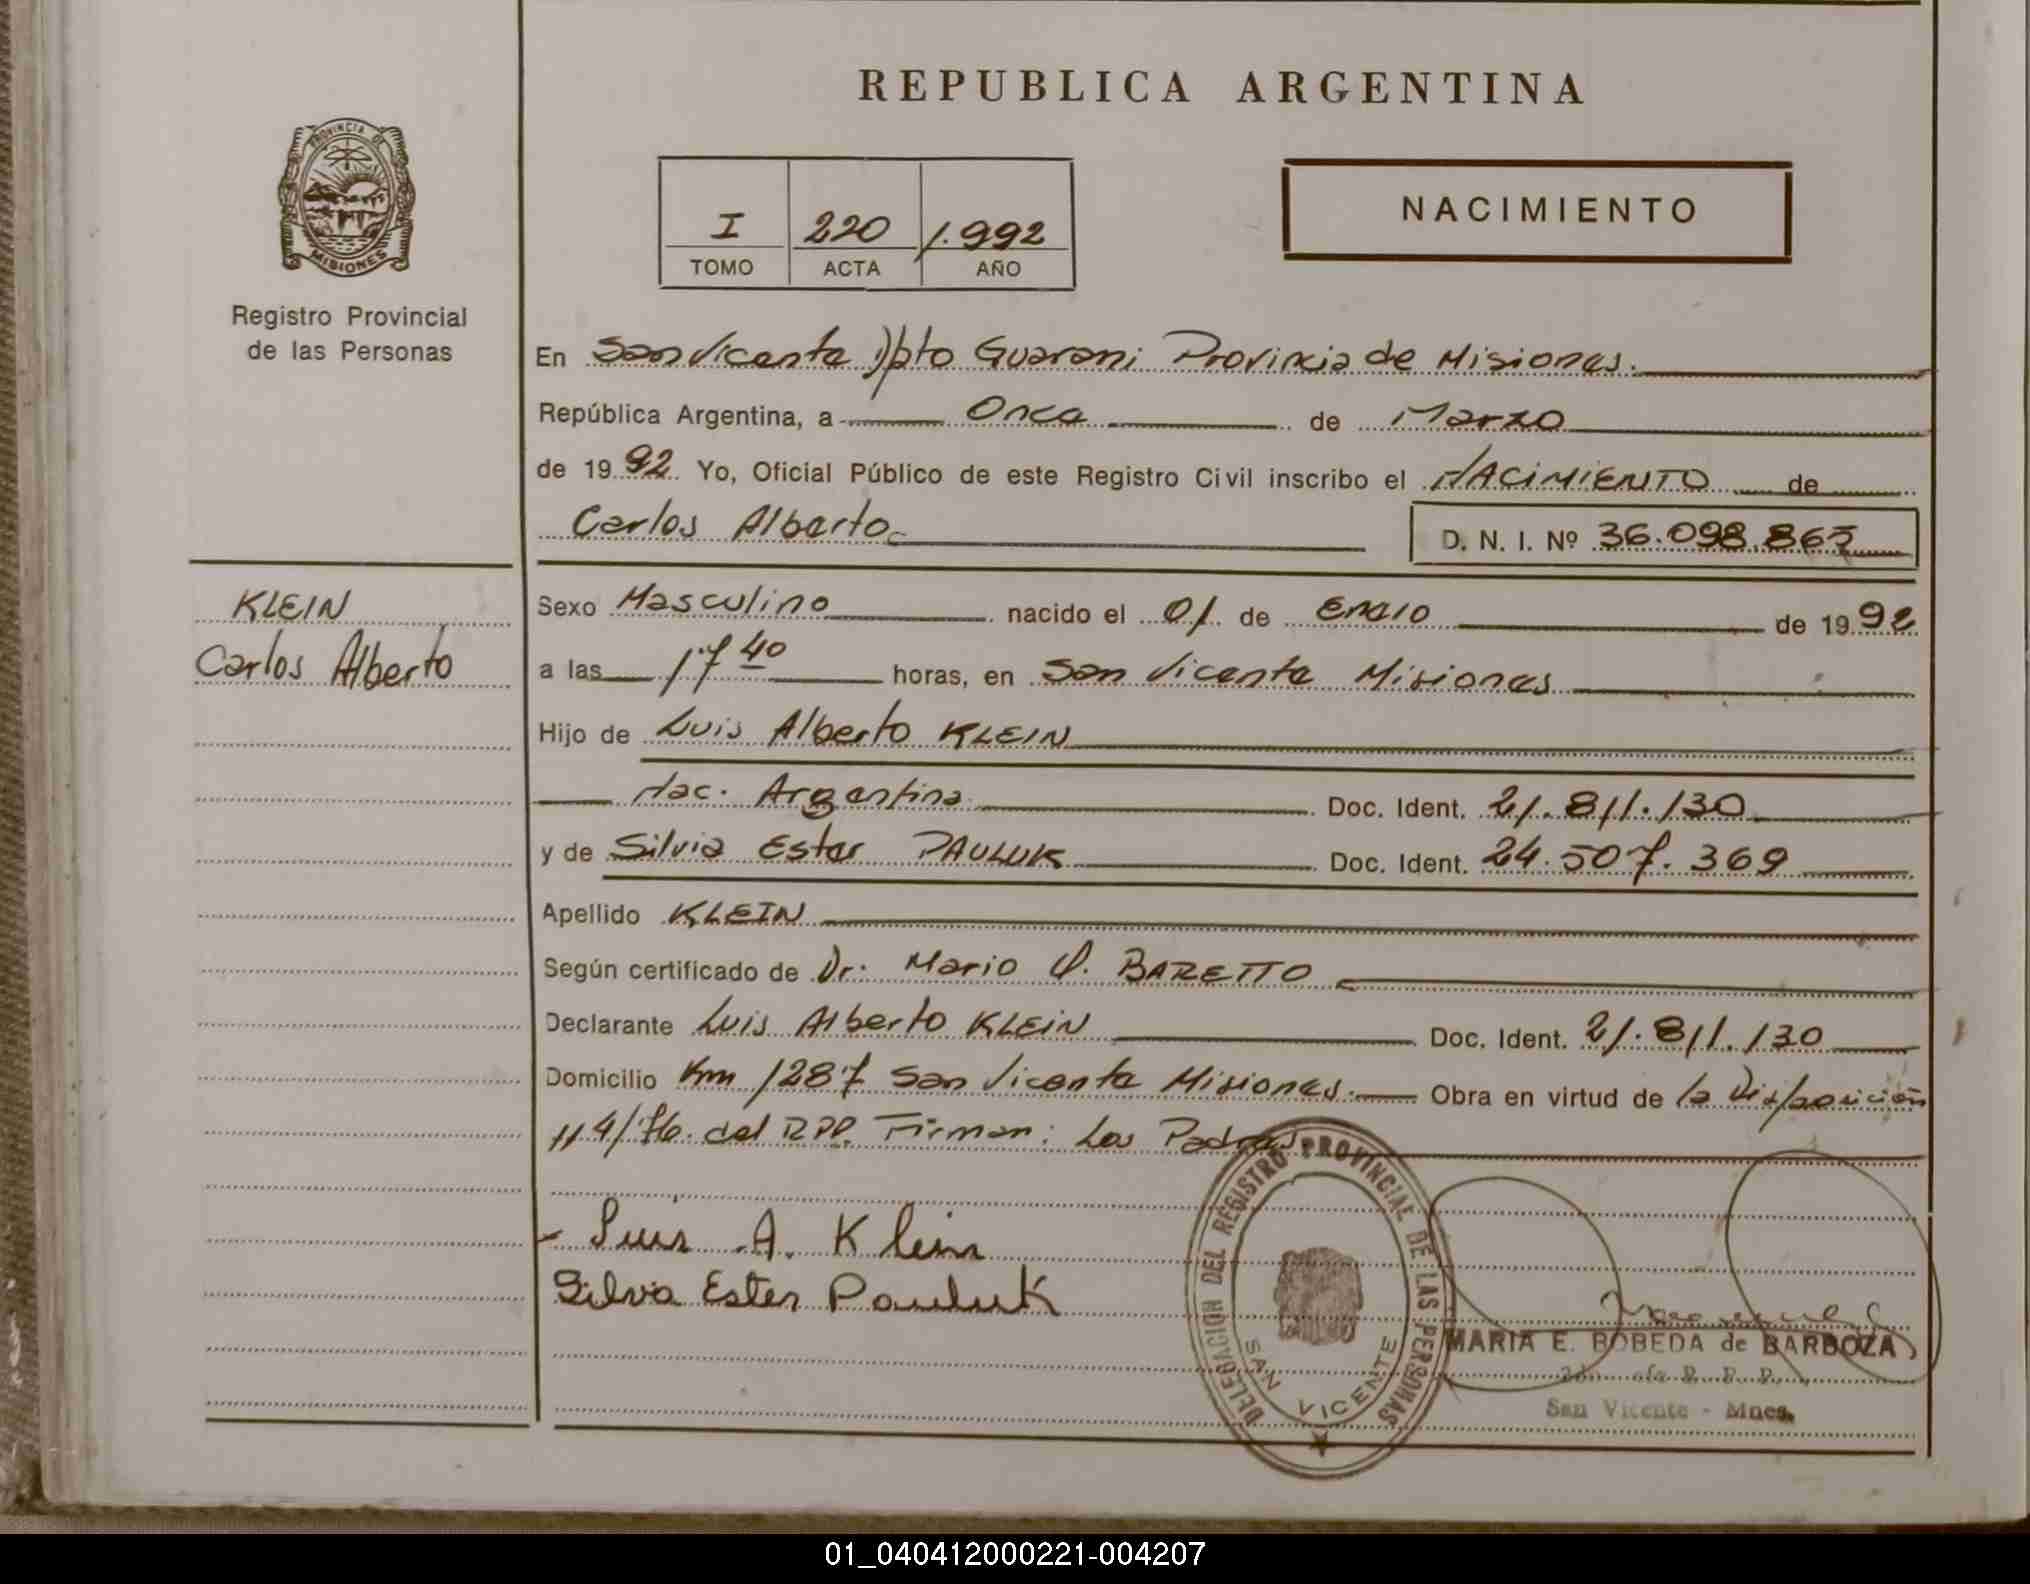 REPUBLICA ARGENTINA
PROVINCIA DE
MISIONES
Registro Provincial
de las Personas
I 220 1.992
TOMO ACTA AÑO
NACIMIENTO
En San Vicente Dpto Guarani Provincia de Misiones.
República Argentina, a Once de Marzo
de 1992 Yo, Oficial Público de este Registro Civil inscribo el NACIMIENTO de
Carlos Alberto
D. N. I. Nº 36.098.863
KLEIN
Carlos Alberto
Sexo Masculino nacido el 01 de Enero de 1992
a las 17 40 horas, en San Vicente Misiones
Hijo de Luis Alberto KLEIN
Nac. Argentina Doc. Ident. 21.811.130
y de Silvia Ester PAULUK Doc. Ident. 24.507.369
Apellido KLEIN
Según certificado de Dr. Mario BARETTO
Declarante Luis Alberto KLEIN Doc. Ident. 21.811.130
Domicilio Km 1287 San Vicente Misiones. Obra en virtud de la Disposición
114/76. del RPP. Firman: Los Padres
Luis A. Klein
Silvia Ester Pauluk
DELEGACION DEL REGISTRO PROVINCIAL DE LAS PERSONAS
SAN VICENTE
MARIA E. BOBEDA de BARBOZA
San Vicente - Mnes.
01_040412000221-004207